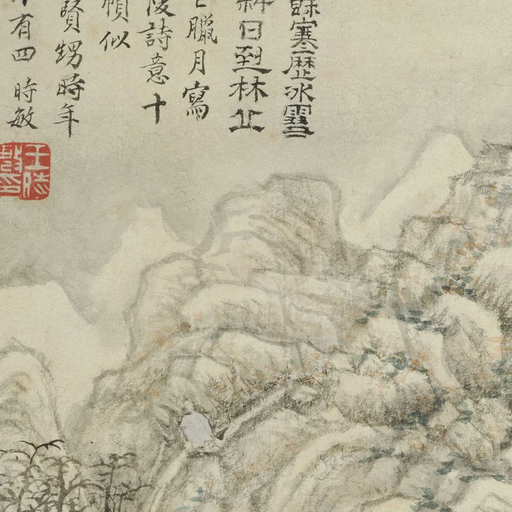 餘寒歷冰雪
斜日到林丘
臘月寫
陵詩意十
幀似
賢甥時年
有四 時敏
王時敏印